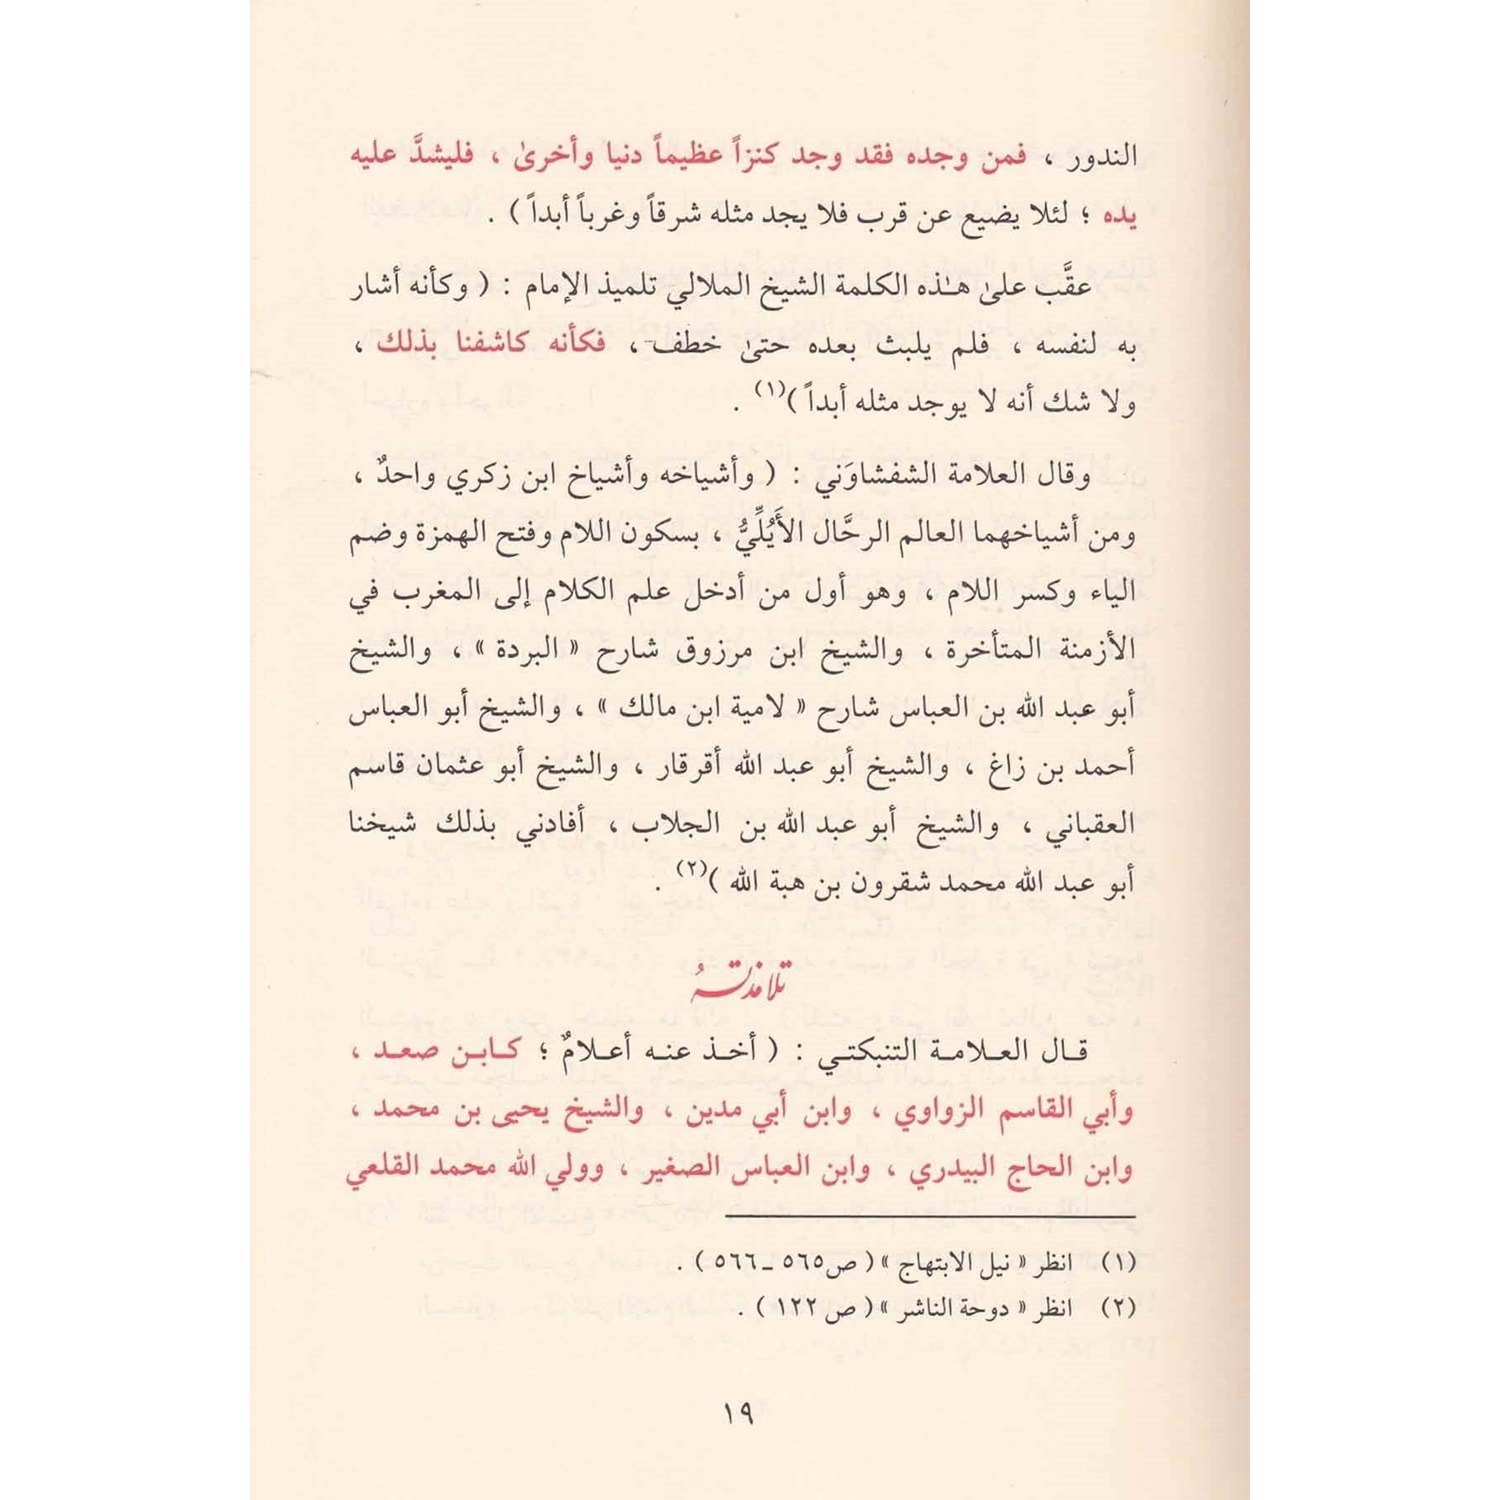 الندور ، فمن وجده فقد وجد كنزاً عظيماً دنيا وأخرىٰ ، فليشدَّ عليه
يده ؛ لئلا يضيع عن قرب فلا يجد مثله شرقاً وغرباً أبداً ) .
عقَّب علىٰ هـٰذه الكلمة الشيخ الملالي تلميذ الإمام : ( وكأنه أشار
به لنفسه ، فلم يلبث بعده حتىٰ خطف ، فكأنه كاشفنا بذلك ،
ولا شك أنه لا يوجد مثله أبداً )(١) .
وقال العلامة الشفشاوَني : ( وأشياخه وأشياخ ابن زكري واحدٌ ،
ومن أشياخهما العالم الرحَّال الأَيُلِّيُّ ، بسكون اللام وفتح الهمزة وضم
الياء وكسر اللام ، وهو أول من أدخل علم الكلام إلى المغرب في
الأزمنة المتأخرة ، والشيخ ابن مرزوق شارح « البردة » ، والشيخ
أبو عبد الله بن العباس شارح « لامية ابن مالك » ، والشيخ أبو العباس
أحمد بن زاغ ، والشيخ أبو عبد الله أقرقار ، والشيخ أبو عثمان قاسم
العقباني ، والشيخ أبو عبد الله بن الجلاب ، أفادني بذلك شيخنا
أبو عبد الله محمد شقرون بن هبة الله )(٢) .
تلامذتهُ
قال العلامة التنبكتي : ( أخذ عنه أعلامٌ ؛ كابن صعد ،
وأبي القاسم الزواوي ، وابن أبي مدين ، والشيخ يحيى بن محمد ،
وابن الحاج البيدري ، وابن العباس الصغير ، وولي الله محمد القلعي
(١) انظر « نيل الابتهاج » ( ص٥٦٥ ـ ٥٦٦ ) .
(٢) انظر « دوحة الناشر » ( ص ١٢٢ ) .
١٩